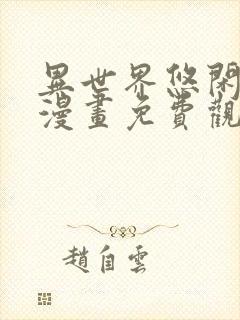 異世界悠閑
漫畫免費觀
趙自雲